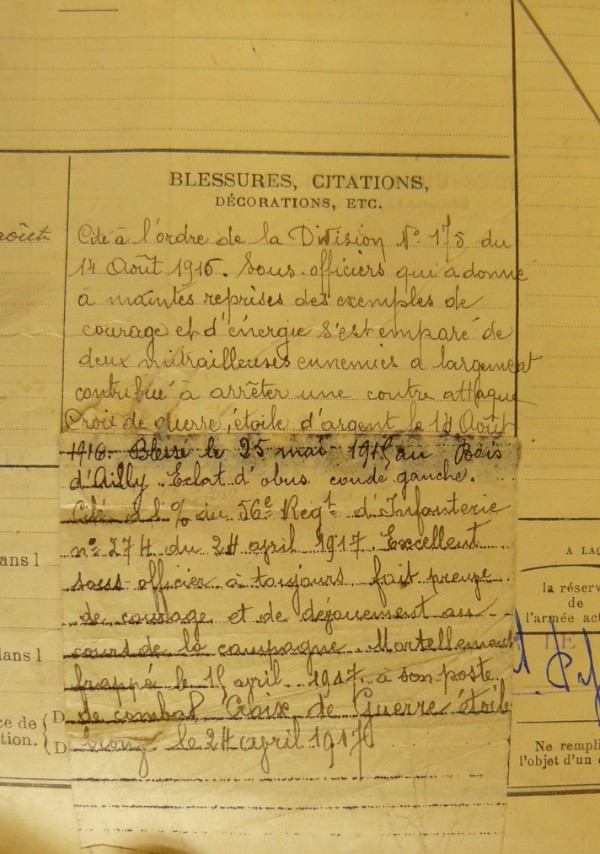 BLESSURES, CITATIONS,
DÉCORATIONS, ETC.
août
Cité à l'ordre de la Division N° 175 du
14 Août 1916. Sous officiers qui a donné
à maintes reprises des exemples de
courage et d'énergie s'est emparé de
deux mitrailleuses ennemies a largement
contribué à arrêter une contre attaque
Croix de Guerre, étoile d'argent le 14 Août
1916. Blessé le 25 mai 1915 au Bois
d'Ailly. Eclat d'obus coude gauche.
Cité à l'o/ du 56e Regt d'Infanterie
n° 274 du 24 april 1917. Excellent
sous officier à toujours fait preuve
de courage et de dévouement au
cours de la campagne. Mortellement
frappé le april 1917 à son poste
de combat Croix de Guerre étoile
bronz le 24 april 1917
dans l
dans l
ce de
tion.
D
D
A LAQ
la réserv
de
l'armée act
Ne rempli
l'objet d'un c